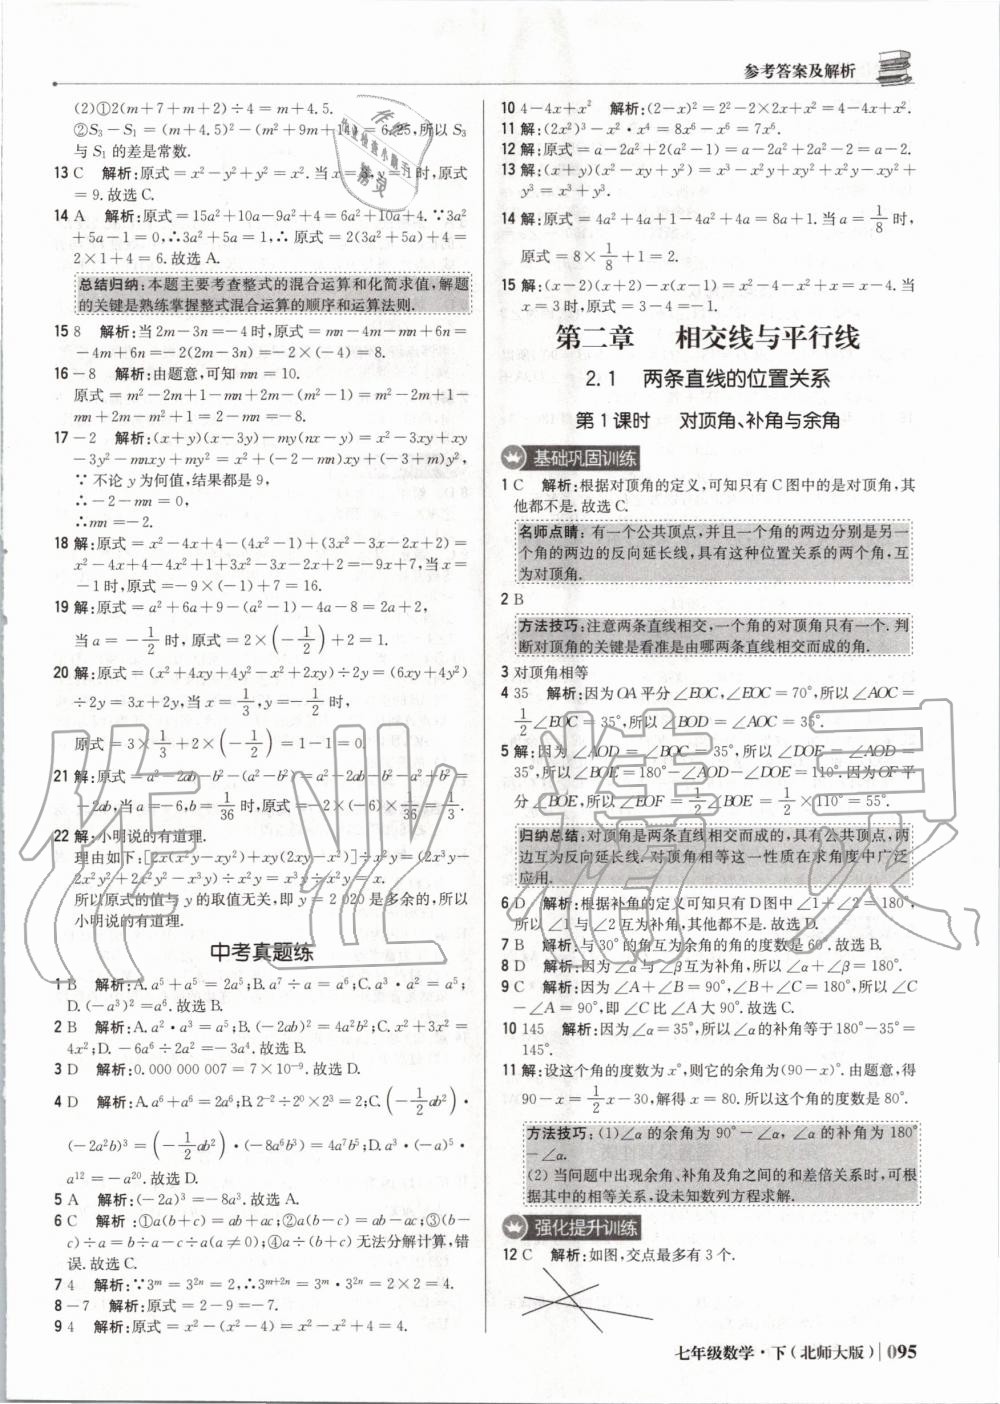 参考答案及解析
(2)①2(m+7+m+2)÷4=m+4.5.
②S₃-S₁=(m+4.5)²-(m²+9m+14)=6.25,所以 S₃
与 S₁ 的差是常数.
13 C 解析:原式=x²-y²+y²=x². 当 x=3,y=1 时,原式
=9. 故选 C.
14 A 解析:原式=15a²+10a-9a²+4=6a²+10a+4. ∵3a²
+5a-1=0,∴3a²+5a=1,∴原式=2(3a²+5a)+4=
2×1+4=6. 故选 A.
总结归纳:本题主要考查整式的混合运算和化简求值,解题
的关键是熟练掌握整式混合运算的顺序和运算法则.
15 8 解析:当 2m-3n=-4 时,原式=mn-4m-mn+6n=
-4m+6n=-2(2m-3n)=-2×(-4)=8.
16 -8 解析:由题意,可知 mn=10.
原式=m²-2m+1-mn+2m-(m²-1)=m²-2m+1-
mn+2m-m²+1=2-mn=-8.
17 -2 解析:(x+y)(x-3y)-my(nx-y)=x²-3xy+xy
-3y²-mnxy+my²=x²+(-2-mn)xy+(-3+m)y²,
∵不论 y 为何值,结果都是 9,
∴-2-mn=0,
∴mn=-2.
18 解:原式=x²-4x+4-(4x²-1)+(3x²-3x-2x+2)=
x²-4x+4-4x²+1+3x²-3x-2x+2=-9x+7,当 x=
-1 时,原式=-9×(-1)+7=16.
19 解:原式=a²+6a+9-(a²-1)-4a-8=2a+2,
当 a=-1/2 时,原式=2×(-1/2)+2=1.
20 解:原式=(x²+4xy+4y²-x²+2xy)÷2y=(6xy+4y²)
÷2y=3x+2y,当 x=1/3,y=-1/2 时,
原式=3×1/3+2×(-1/2)=1-1=0.
21 解:原式=a²-2ab-b²-(a²-b²)=a²-2ab-b²-a²+b²=
-2ab,当 a=-6,b=1/36 时,原式=-2×(-6)×1/36=1/3.
22 解:小明说的有道理.
理由如下:[2x(x²y-xy²)+xy(2xy-x²)]÷x²y=(2x³y-
2x²y²+2x²y²-x³y)÷x²y=x³y÷x²y=x.
所以原式的值与 y 的取值无关,即 y=2 020 是多余的,所以
小明说的有道理.
中考真题练
1 B 解析:A. a⁵+a⁵=2a⁵;B. a⁷÷a=a⁶;C. a³·a²=a⁵;
D. (-a³)²=a⁶. 故选 B.
2 B 解析:A. a²·a³=a⁵;B. (-2ab)²=4a²b²;C. x²+3x²=
4x²;D. -6a⁶÷2a²=-3a⁴. 故选 B.
3 D 解析:0.000 000 007=7×10⁻⁹. 故选 D.
4 D 解析:A. a⁶+a⁶=2a⁶;B. 2⁻²÷2⁰×2³=2;C. (-1/2ab²)·
(-2a²b)³=(-1/2ab²)·(-8a⁶b³)=4a⁷b⁵;D. a³·(-a)⁵·
a¹²=-a²⁰. 故选 D.
5 A 解析:(-2a)³=-8a³. 故选 A.
6 C 解析:①a(b+c)=ab+ac;②a(b-c)=ab-ac;③(b-
c)÷a=b÷a-c÷a(a≠0);④a÷(b+c)无法分解计算,错
误. 故选 C.
7 4 解析:∵3ᵐ=3²ⁿ=2,∴3ᵐ⁺²ⁿ=3ᵐ·3²ⁿ=2×2=4.
8 -7 解析:原式=2-9=-7.
9 4 解析:原式=x²-(x²-4)=x²-x²+4=4.
10 4-4x+x² 解析:(2-x)²=2²-2×2x+x²=4-4x+x².
11 解:(2x²)³-x²·x⁴=8x⁶-x⁶=7x⁶.
12 解:原式=a-2a²+2(a²-1)=a-2a²+2a²-2=a-2.
13 解:(x+y)(x²-xy+y²)=x³-x²y+xy²+x²y-xy²+
y³=x³+y³.
14 解:原式=4a²+4a+1-4a²+4a=8a+1. 当 a=1/8 时,
原式=8×1/8+1=2.
15 解:(x-2)(x+2)-x(x-1)=x²-4-x²+x=x-4. 当
x=3 时,原式=3-4=-1.
第二章 相交线与平行线
2.1 两条直线的位置关系
第 1 课时 对顶角、补角与余角
基础巩固训练
1 C 解析:根据对顶角的定义,可知只有 C 图中的是对顶角,其
他都不是. 故选 C.
名师点睛:有一个公共顶点,并且一个角的两边分别是另一
个角的两边的反向延长线,具有这种位置关系的两个角,互
为对顶角.
2 B
方法技巧:注意两条直线相交,一个角的对顶角只有一个. 判
断对顶角的关键是看准是由哪两条直线相交而成的角.
3 对顶角相等
4 35 解析:因为 OA 平分∠EOC,∠EOC=70°,所以∠AOC=
1/2∠EOC=35°,所以∠BOD=∠AOC=35°.
5 解:因为∠AOD=∠BOC=35°,所以∠DOE=∠AOD=
35°,所以∠BOE=180°-∠AOD-∠DOE=110°. 因为 OF 平
分∠BOE,所以∠EOF=1/2∠BOE=1/2×110°=55°.
归纳总结:对顶角是两条直线相交而成的,具有公共顶点,两
边互为反向延长线. 对顶角相等这一性质在求角度中广泛
应用.
6 D 解析:根据补角的定义可知只有 D 图中∠1+∠2=180°,
所以∠1 与∠2 互为补角,其他都不是. 故选 D.
7 B 解析:与 30°的角互为余角的角的度数是 60°. 故选 B.
8 D 解析:因为∠α 与∠β 互为补角,所以∠α+∠β=180°.
9 C 解析:因为∠A+∠B=90°,∠B+∠C=180°,所以∠C
-∠A=90°,即∠C 比∠A 大 90°. 故选 C.
10 145 解析:因为∠α=35°,所以∠α 的补角等于180°-35°=
145°.
11 解:设这个角的度数为 x°,则它的余角为(90-x)°. 由题意,得
90-x=1/2x-30,解得 x=80. 所以这个角的度数是 80°.
方法技巧:(1)∠α 的余角为 90°-∠α,∠α 的补角为 180°
-∠α.
(2)当问题中出现余角、补角及角之间的和差倍关系时,可根
据其中的相等关系,设未知数列方程求解.
强化提升训练
12 C 解析:如图,交点最多有 3 个.
七年级数学·下(北师大版) 095
作业精灵